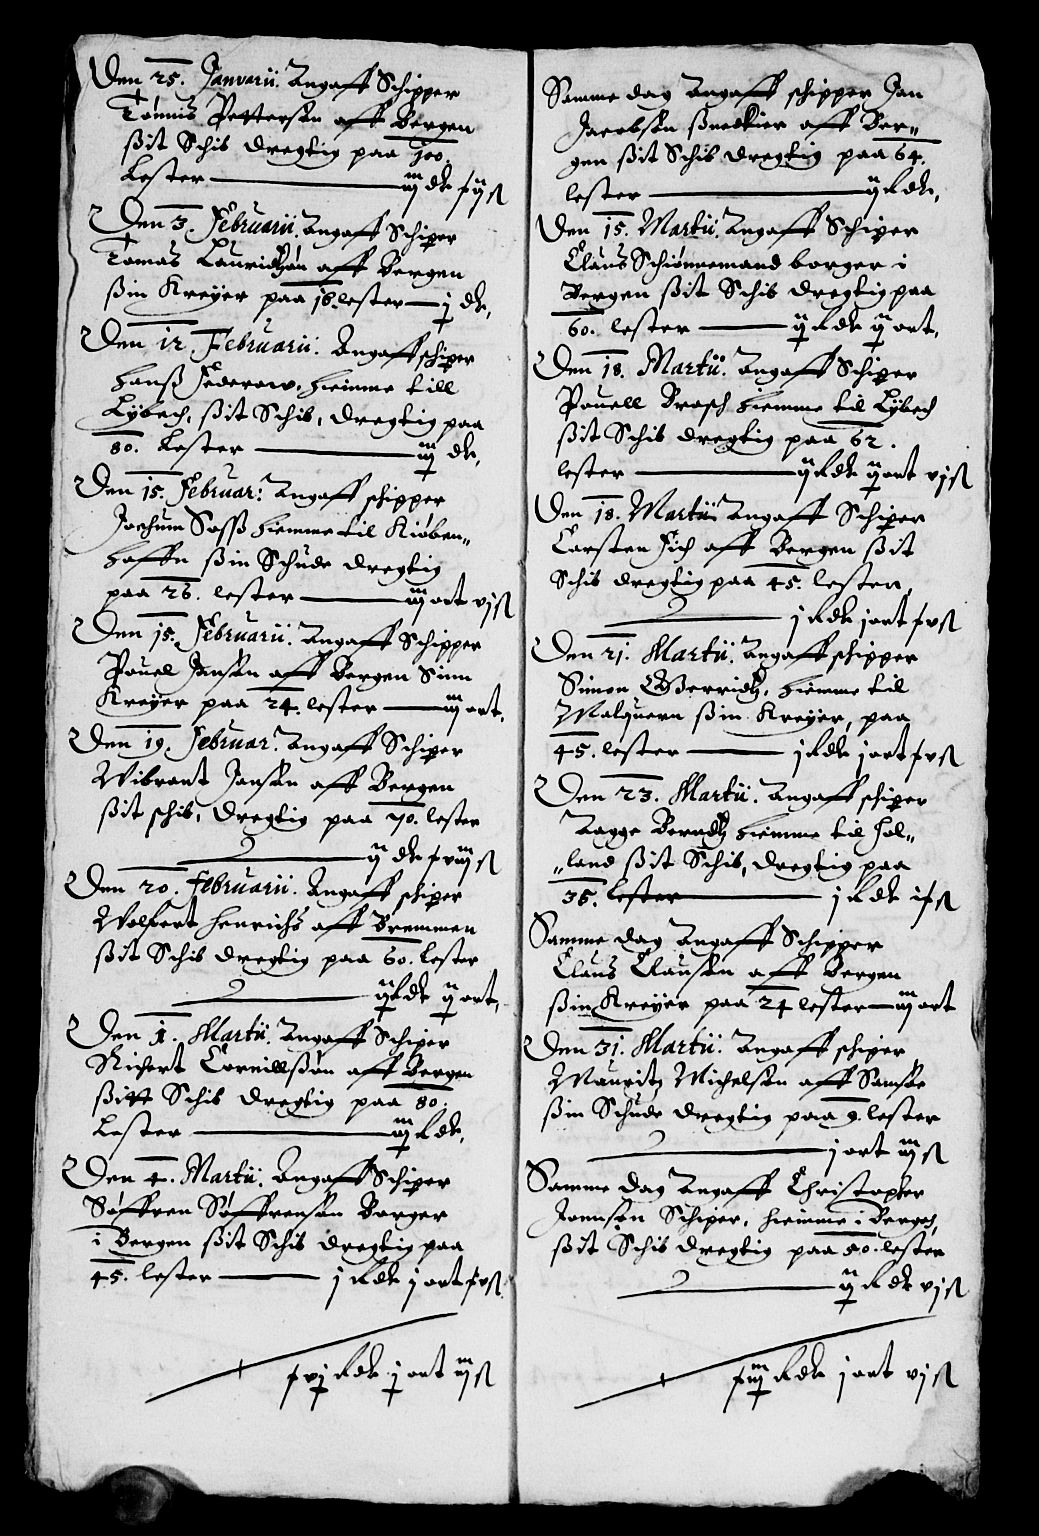 Den 25. Januarii. Angaff Schipper
Tønnis Pettersøn aff Bergen
ßit Schib dregtig paa 100.
Lester iij dlr
Den 3. Februarii. Angaff Schiper
Tomas Lauridtzøn aff Bergen
ßin Kreyer paa 16. lester j dlr.
Den 12 Februarii. Angaff schiper
Hanß Federow, hiemme till
Lybech, ßit Schib, dregtig paa
80. Lester iij dlr.
Den 15. Februar: Angaff schipper
Jochum Saß hiemme til Kiøben„
haffn ßin Schude dregtig
paa 26. lester iij ort vj ß
Den 15. Februarii. Angaff Schipper
Pouel Jansøn aff Bergen Sinn
Kreyer paa 24. lester iij ort.
Den 19. Februar. Angaff Schiper
Wibrant Jansøn aff Bergen
ßit schib, dregtig paa 70. lester
ij dlr xviij ß
Den 20. Februarii. Angaff schiper
Wolfert Henrichs aff Bremmen
ßit Schib dregtig paa 60. lester
ij Rdlr ij ort.
Den 1. Martii. Angaff Schiper
Richert Cornillßøn aff Bergen
ßitt Schib dregtig paa 80.
Lester iij Rdlr.
Den 4. Martii. Angaff Schiper
Søffren Søffrensøn Borger
i Bergen ßit Schib dregtig paa
45. lester j Rdlr j ort xv ß
xvj Rdlr j ort iij ß
Samme dag Angaff schipper Jan
Jacobsøn ßnedkier aff Ber„
gen ßit Schib dregtig paa 64.
lester ij Rdlr.
Den 15. Martii. Angaff Schiper
Claus Schiønnemand borger i
Bergen ßit Schib dregtig paa
60. lester ij Rdlr ij ort.
Den 18. Martii. Angaff Schiper
Pouell Brasch hiemme til Lybech
ßit Schib dregtig paa 62.
lester ij Rdlr ij ort vj ß
Den 18. Martii Angaff Schiper
Carsten Fich aff Bergen ßit
Schib dregtig paa 45. lester,
j Rdlr j ort xv ß
Den 21. Martii. Angaff schipper
Simon Gerridtz, hiemme til
Malquern ßin Kreyer, paa
45. lester j Rdlr j ort xv ß
Den 23. Martii. Angaff schiper
Tagge Berndtz hiemme til Hol„
„land ßit Schib, dregtig paa
36. lester j Rdlr ß
Samme dag Angaff Schipper
Claus Clausøn aff Bergen
ßin Kreyer paa 24 lester iij ort
Den 31. Martii. Angaff schiper
Mauritz Michelsøn aff Samsøe
ßin Schude dregtig paa 9. lester
j ort iij ß
Samme dag Angaff Christopher
Joensøn Schiper, hiemme i Bergen,
ßit Schib dregtig paa 50. lester
ij Rdlr vj ß
xiij Rdlr j ort vj ß